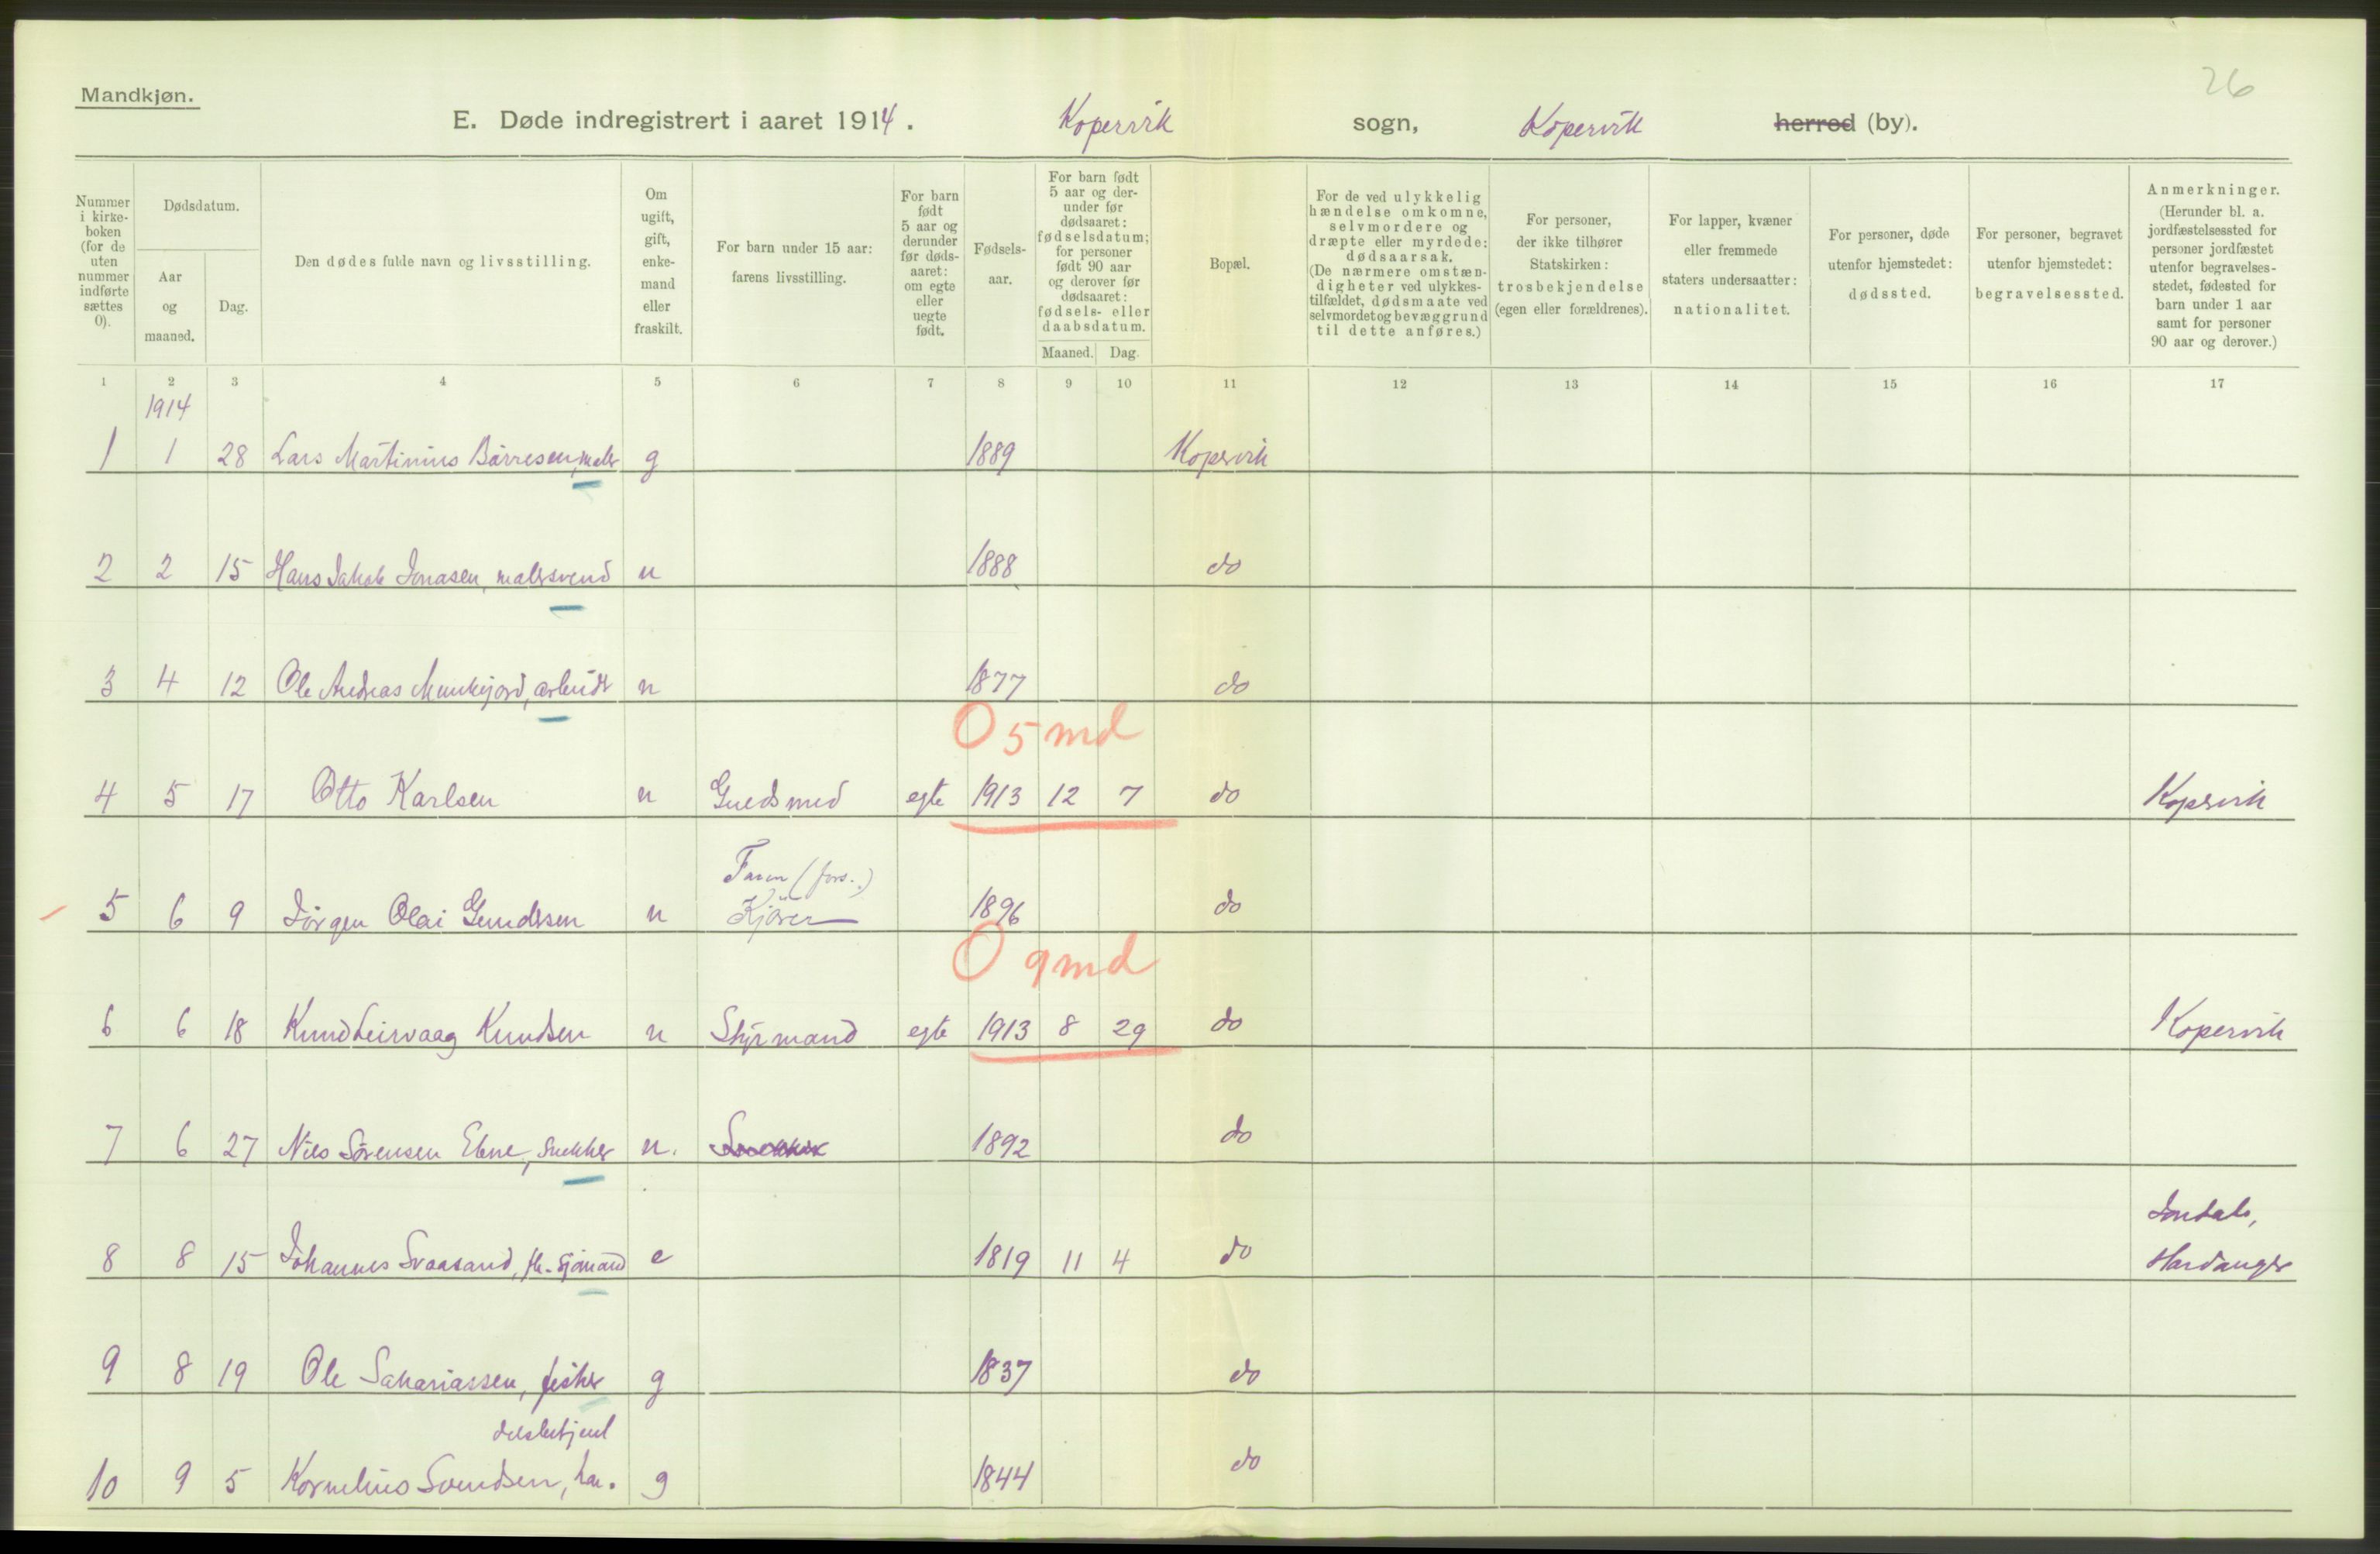 26
Mandkjøn.
E. Døde indregistrert i aaret 1914. Kopervik sogn, Kopervik herred (by).
Nummer i kirkeboken (for de uten nummer indførte sættes 0).
Dødsdatum.
Aar og maaned.
Dag.
Den dødes fulde navn og livsstilling.
Om ugift, gift, enkemand eller fraskilt.
For barn under 15 aar: farens livsstilling.
For barn født 5 aar og derunder før dødsaaret: om egte eller uegte født.
Fødselsaar.
For barn født 5 aar og derunder før dødsaaret: fødselsdatum; for personer født 90 aar og derover før dødsaaret: fødsels- eller daabsdatum.
Maaned. Dag.
Bopæl.
For de ved ulykkelig hændelse omkomne, selvmordere og dræpte eller myrdede: dødsaarsak. (De nærmere omstændigheter ved ulykkestilfældet, dødsmaate ved selvmordet og bevæggrund til dette anføres.)
For personer, der ikke tilhører Statskirken: trosbekjendelse (egen eller forældrenes).
For lapper, kvæner eller fremmede staters undersaatter: nationalitet.
For personer, døde utenfor hjemstedet: dødssted.
For personer, begravet utenfor hjemstedet: begravelsessted.
Anmerkninger. (Herunder bl. a. jordfæstelsessted for personer jordfæstet utenfor begravelsesstedet, fødested for barn under 1 aar samt for personer 90 aar og derover.)
1 2 3 4 5 6 7 8 9 10 11 12 13 14 15 16 17
1914
1 1 28 Lars Martinius Børresen, maler g 1889 Kopervik
2 2 15 Hans Jakob Jonasen, malersvend u 1888 do
3 4 12 Ole Andreas Munkejord, arbeidr u 1877 do
0 5 md
4 5 17 Otto Karlsen u Guldsmed egte 1913 12 7 do Kopervik
Faren (fors.)
5 6 9 Jørgen Olai Gundersen u 1896 do
0 9 md
6 6 18 Knud Leirvaag Knudsen u Styrmand egte 1913 8 29 do Kopervik
7 6 27 Nils Sørensen Ebne, snekker u. Snekker 1892 do
Jondal,
8 8 15 Johannes Svaasand, fh. sjømand e 1819 11 4 do Hardanger
9 8 19 Ole Sakariassen, fisker g 1837 do
delsbetjent
10 9 5 Kornelius Svendsen, han- g 1844 do